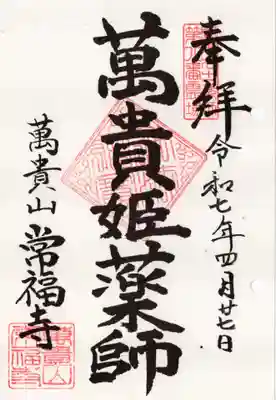 奉拜
令和七年四月廿七日
萬貴姫薬師
萬貴山 常福寺